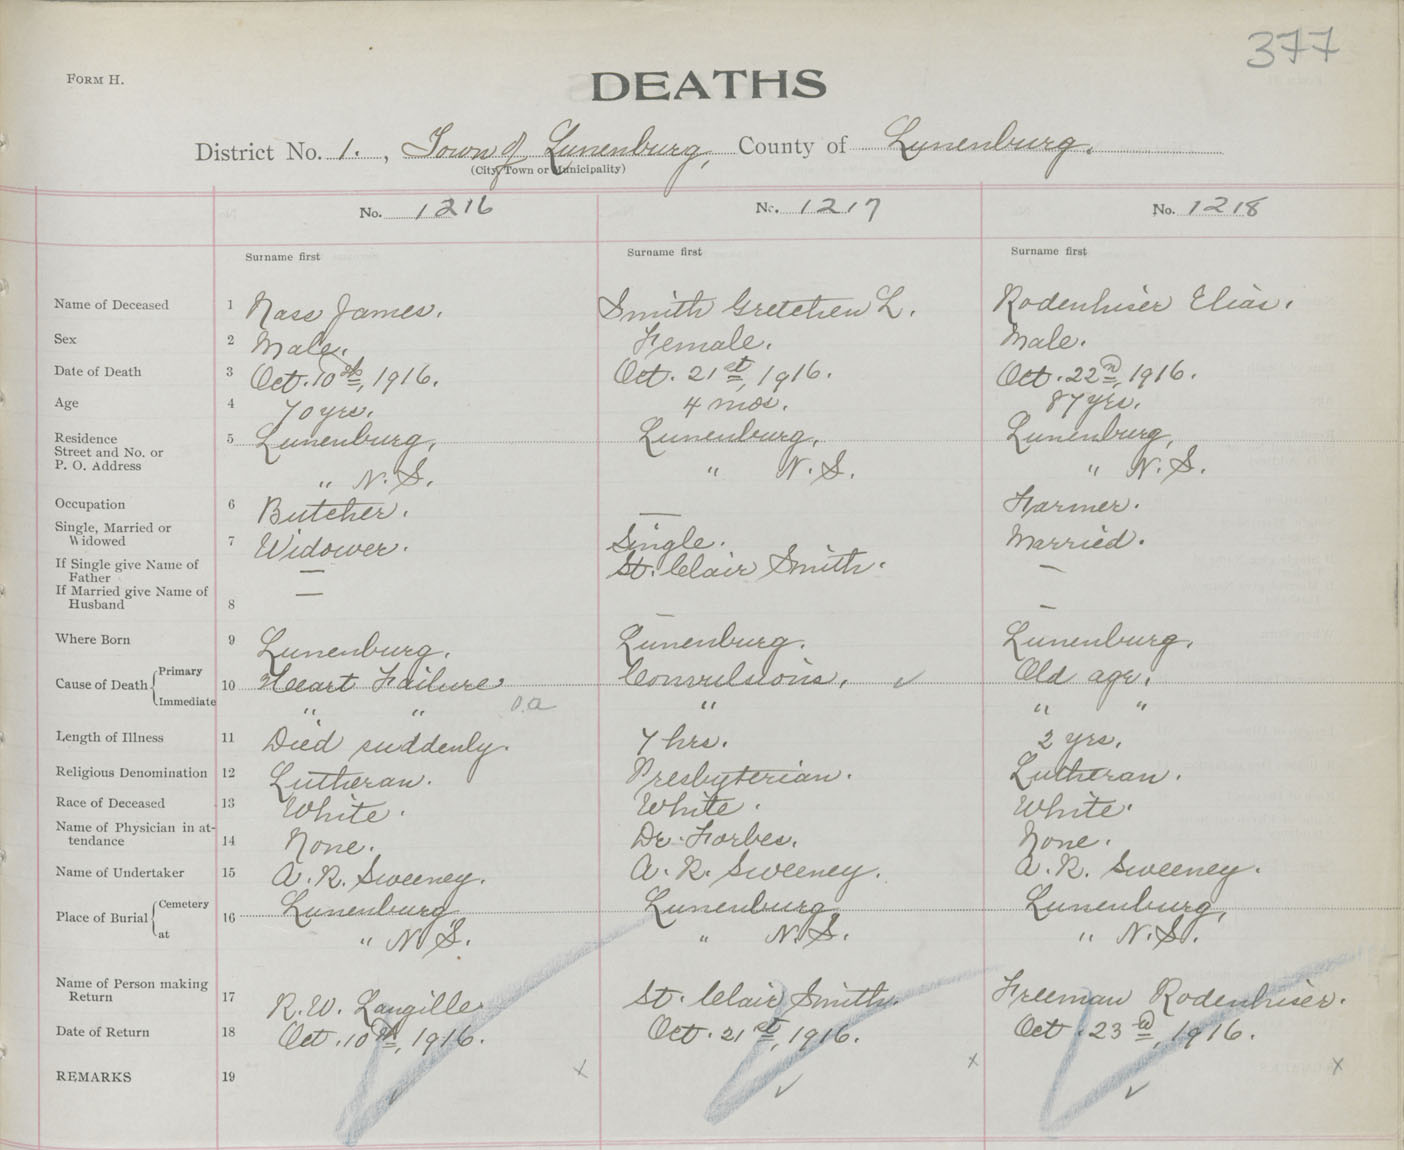 377
FORM H.
DEATHS
District No. 1. , Town of Lunenburg, County of Lunenburg.
(City, Town or Municipality)
No. 1216 No. 1217 No. 1218
Surname first Surname first Surname first
Name of Deceased 1 Nass James. Smith Gretchen L. Rodenhiser Elias.
Sex 2 Male. Female. Male.
Date of Death 3 Oct. 10th, 1916. Oct. 21st, 1916. Oct. 22nd, 1916.
Age 4 70 yrs. 4 mos. 87 yrs.
Residence 5 Lunenburg, Lunenburg, Lunenburg,
Street and No. or
P. O. Address " N.S. " N.S. " N.S.
Occupation 6 Butcher. — Farmer.
Single, Married or
Widowed 7 Widower. Single. Married.
If Single give Name of
Father — St. Clair Smith. —
If Married give Name of
Husband 8 — — —
Where Born 9 Lunenburg. Lunenburg. Lunenburg.
Cause of Death { Primary 10 Heart Failure Convulsions. ✓ Old age.
Immediate " " " " "
Length of Illness 11 Died suddenly. 7 hrs. 2 yrs.
Religious Denomination 12 Lutheran. Presbyterian. Lutheran.
Race of Deceased 13 White. White. White.
Name of Physician in at-
tendance 14 None. Dr. Forbes. None.
Name of Undertaker 15 A. R. Sweeney. A. R. Sweeney. A. R. Sweeney.
Place of Burial { Cemetery 16 Lunenburg Lunenburg, Lunenburg,
at " N.S. " N.S. " N.S.
Name of Person making
Return 17 R. W. Langille St. Clair Smith. Freeman Rodenhiser.
Date of Return 18 Oct. 10th, 1916. Oct. 21st, 1916. Oct. 23d, 1916.
REMARKS 19 x ✓ x ✓ x